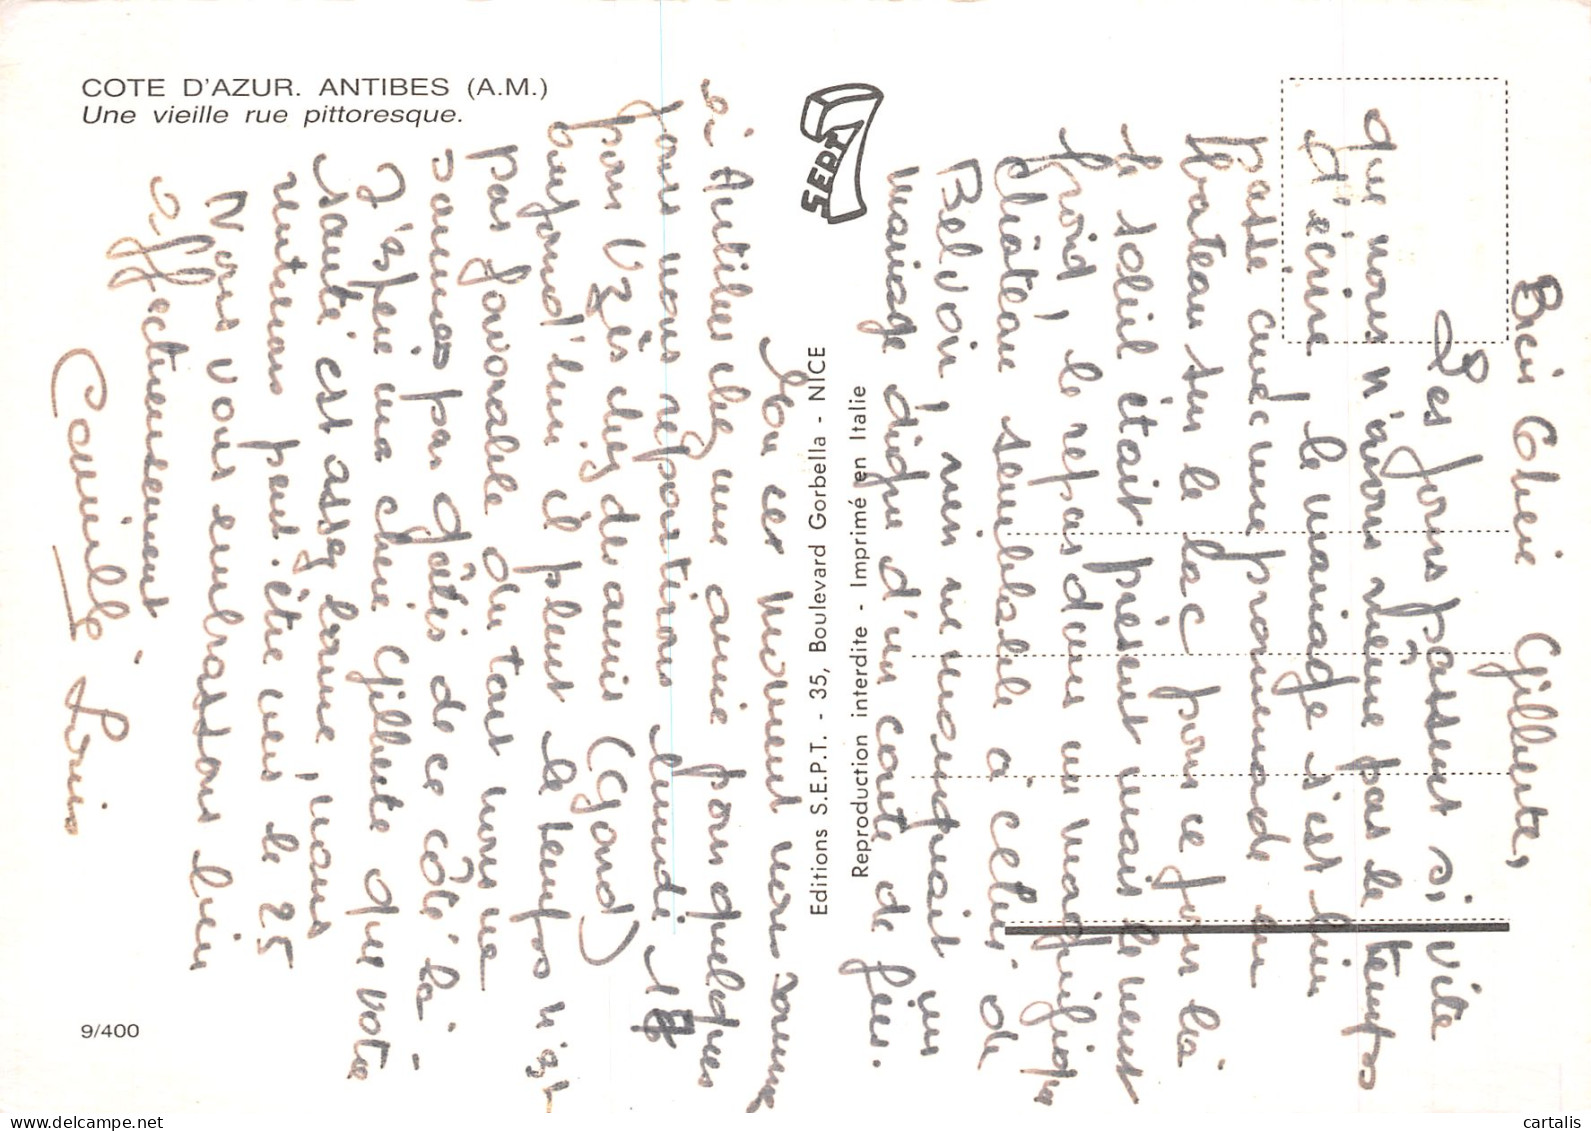 COTE D'AZUR. ANTIBES (A.M.)
Une vieille rue pittoresque.
SEPT
Editions S.E.P.T. - 35, Boulevard Gorbella - NICE
Reproduction interdite - Imprimé en Italie
9/400
Bien Chère Gilberte,
Les jours passent si vite
que nous n'avons même pas le temps
d'écrire, le mariage s'est bien
passé avec une promenade en
bateau sur le lac pour ce jour là
le soleil était présent mais le vent
froid, le repas dans un magnifique
château semblable à celui de
Belvoir, rien ne manquait un
mariage digne d'un conte de fées.
En ces moment nous sommes
à Antibes chez une amie pour quelques
jours nous repartirons lundi
pour Uzès chez des amis (Gard)
aujourd'hui il pleut le temps n'est
pas favorable du tout nous ne
sommes pas gâtés de ce côté là
J'espère ma chère Gilberte que votre
santé est assez bonne, nous
rentrerons peut-être vers le 25
Nous vous embrassons bien
affectueusement
Camille Louis
cartalis
www.delcampe.net